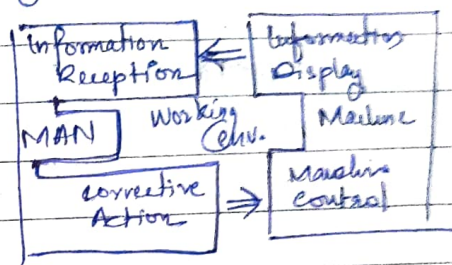 Information
Reception
Information
Display
MAN
Working
env.
Machine
Corrective
Action
Machine
Control